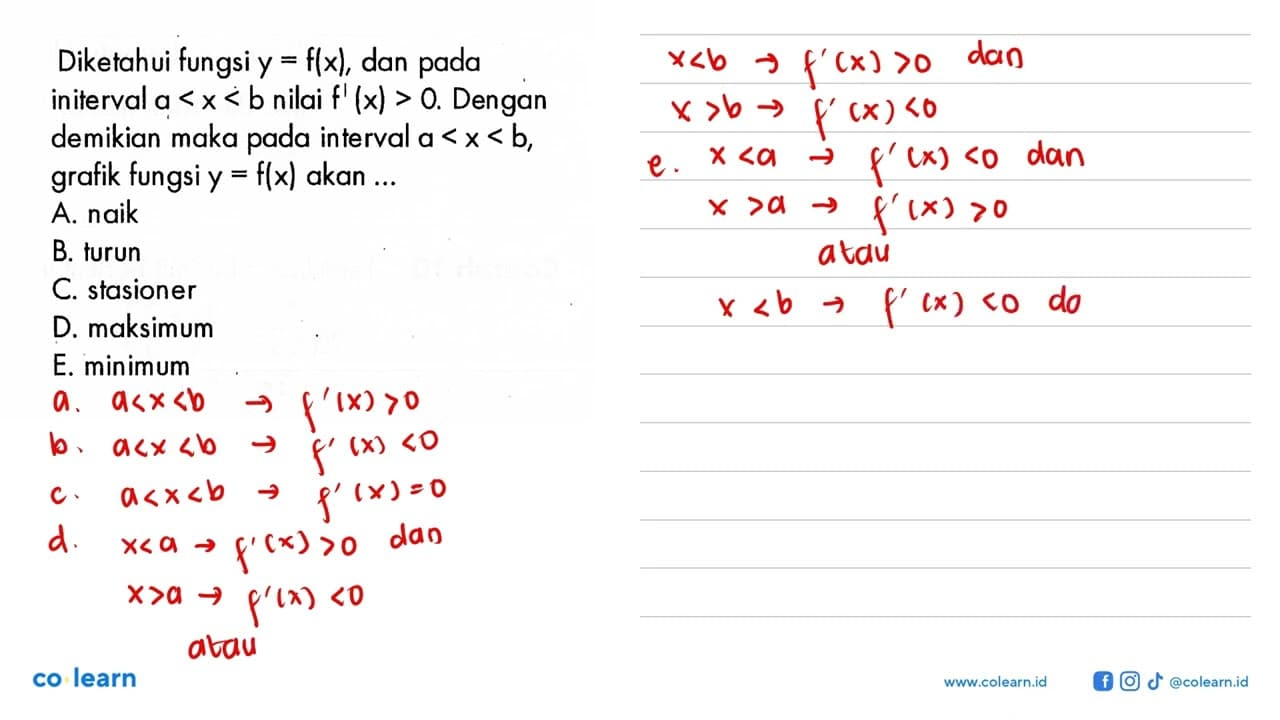 Diketahui fungsi y = f(x), dan pada
initerval a < x < b nilai f' (x) > 0. Dengan
demikian maka pada interval a < x < b,
grafik fungsi y = f(x) akan ...
A. naik
B. turun
C. stasioner
D. maksimum
E. minimum
a. a<x<b → f'(x)>0
b. a<x<b → f'(x)<0
c. a<x<b → f'(x)=0
d. x<a → f'(x)>0 dan
x>a → f'(x)<0
atau
x<b → f'(x)>0 dan
x>b → f'(x)<0
e. x<a → f'(x)<0 dan
x>a → f'(x)>0
atau
x<b → f'(x)<0 da
co learn
www.colearn.id
@colearn.id